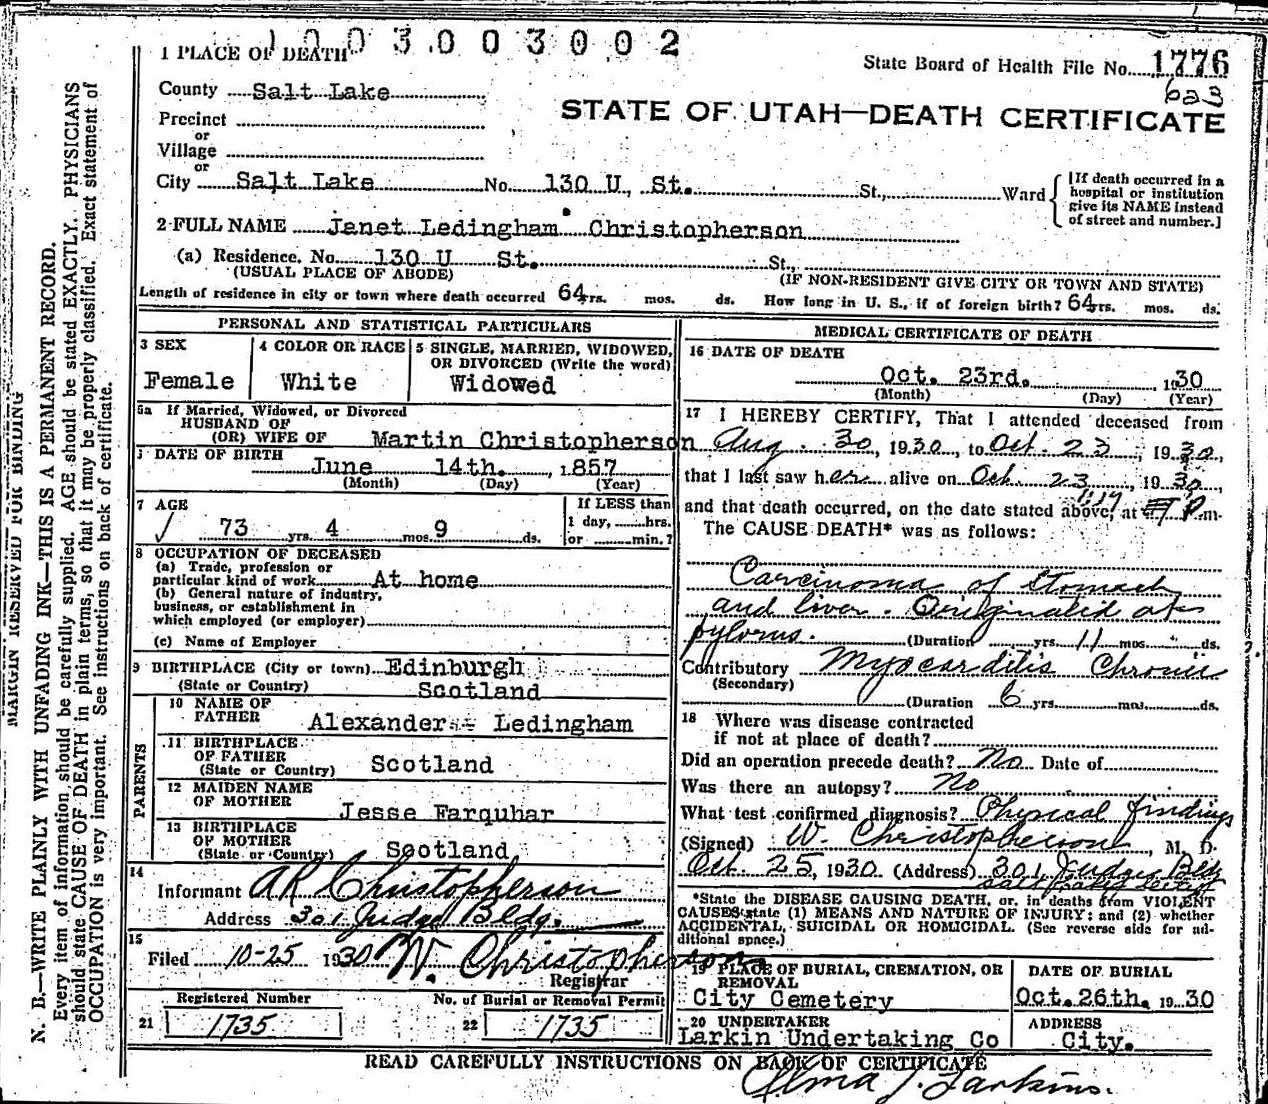 1003003002
1 PLACE OF DEATH
State Board of Health File No. 1776
623
County Salt Lake
STATE OF UTAH—DEATH CERTIFICATE
Precinct
or
Village
or
City Salt Lake No. 130 U. St. St., Ward
[If death occurred in a
hospital or institution
give its NAME instead
of street and number.]
2 FULL NAME Janet Ledingham Christopherson
(a) Residence. No. 130 U St. St.,
(USUAL PLACE OF ABODE) (IF NON-RESIDENT GIVE CITY OR TOWN AND STATE)
Length of residence in city or town where death occurred 64 yrs. mos. ds. How long in U. S., if of foreign birth? 64 yrs. mos. ds.
PERSONAL AND STATISTICAL PARTICULARS
3 SEX 4 COLOR OR RACE 5 SINGLE, MARRIED, WIDOWED,
OR DIVORCED (Write the word)
Female White Widowed
5a If Married, Widowed, or Divorced
HUSBAND OF
(OR) WIFE OF Martin Christopherson
DATE OF BIRTH
June 14th. , 1857
(Month) (Day) (Year)
7 AGE If LESS than
1 day, hrs.
73 yrs. 4 mos. 9 ds. or min.?
8 OCCUPATION OF DECEASED
(a) Trade, profession or
particular kind of work At home
(b) General nature of industry,
business, or establishment in
which employed (or employer)
(c) Name of Employer
9 BIRTHPLACE (City or town) Edinburgh
(State or Country) Scotland
PARENTS
10 NAME OF
FATHER Alexander Ledingham
11 BIRTHPLACE
OF FATHER
(State or Country) Scotland
12 MAIDEN NAME
OF MOTHER
Jesse Farquhar
13 BIRTHPLACE
OF MOTHER
(State or Country) Scotland
14
Informant AR Christopherson
Address 301 Judge Bldg.
15
Filed 10-25 1930 W. Christopherson
Registrar
Registered Number No. of Burial or Removal Permit
21 1735 22 1735
MEDICAL CERTIFICATE OF DEATH
16 DATE OF DEATH
Oct. 23rd. , 1930
(Month) (Day) (Year)
17 I HEREBY CERTIFY, That I attended deceased from
Aug. 30, 1930, to Oct. 23, 1930,
that I last saw her alive on Oct. 23, 1930,
and that death occurred, on the date stated above, at P m.
The CAUSE DEATH* was as follows:
Carcinoma of Stomach
and liver. Originated at
pylorus. (Duration yrs. 11 mos. ds.
Contributory Myocarditis Chronic
(Secondary)
(Duration 6 yrs. mos. ds.
18 Where was disease contracted
if not at place of death?
Did an operation precede death? No Date of
Was there an autopsy? No
What test confirmed diagnosis? Physical findings
(Signed) W. Christopherson, M. D.
Oct 25, 1930 (Address) 301 Judge Bldg
Salt Lake City
*State the DISEASE CAUSING DEATH, or, in deaths from VIOLENT
CAUSES, state (1) MEANS AND NATURE OF INJURY: and (2) whether
ACCIDENTAL, SUICIDAL OR HOMICIDAL. (See reverse side for ad-
ditional space.)
19 PLACE OF BURIAL, CREMATION, OR
REMOVAL
City Cemetery
DATE OF BURIAL
Oct. 26th. 1930
20 UNDERTAKER
Larkin Undertaking Co
ADDRESS
City.
READ CAREFULLY INSTRUCTIONS ON BACK OF CERTIFICATE
Alma J. Larkins.
MARGIN RESERVED FOR BINDING
N. B.—WRITE PLAINLY WITH UNFADING INK—THIS IS A PERMANENT RECORD.
Every item of information should be carefully supplied. AGE should be stated EXACTLY. PHYSICIANS
should state CAUSE OF DEATH in plain terms, so that it may be properly classified. Exact statement of
OCCUPATION is very important. See instructions on back of certificate.